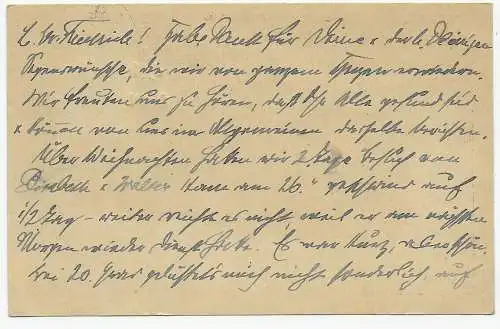 L. Br. Friedrich! Habe Dank für Deine & der l. Deinigen
Segenswünsche, die wir von ganzem Herzen erwidern.
Wir freuten uns zu hören, daß Ihr Alle gesund seid
& können von uns im Allgemeinen dasselbe berichten.
Über Weihnachten hatten wir 2 Tage Besuch von
& Walter kam am 26. auf
1/2 Tag - weiter reicht es nicht weil er am nächsten
Morgen wieder Dienst hatte. Es war kurz, aber schön,
bei 20 Grad mich nicht sonderlich auf